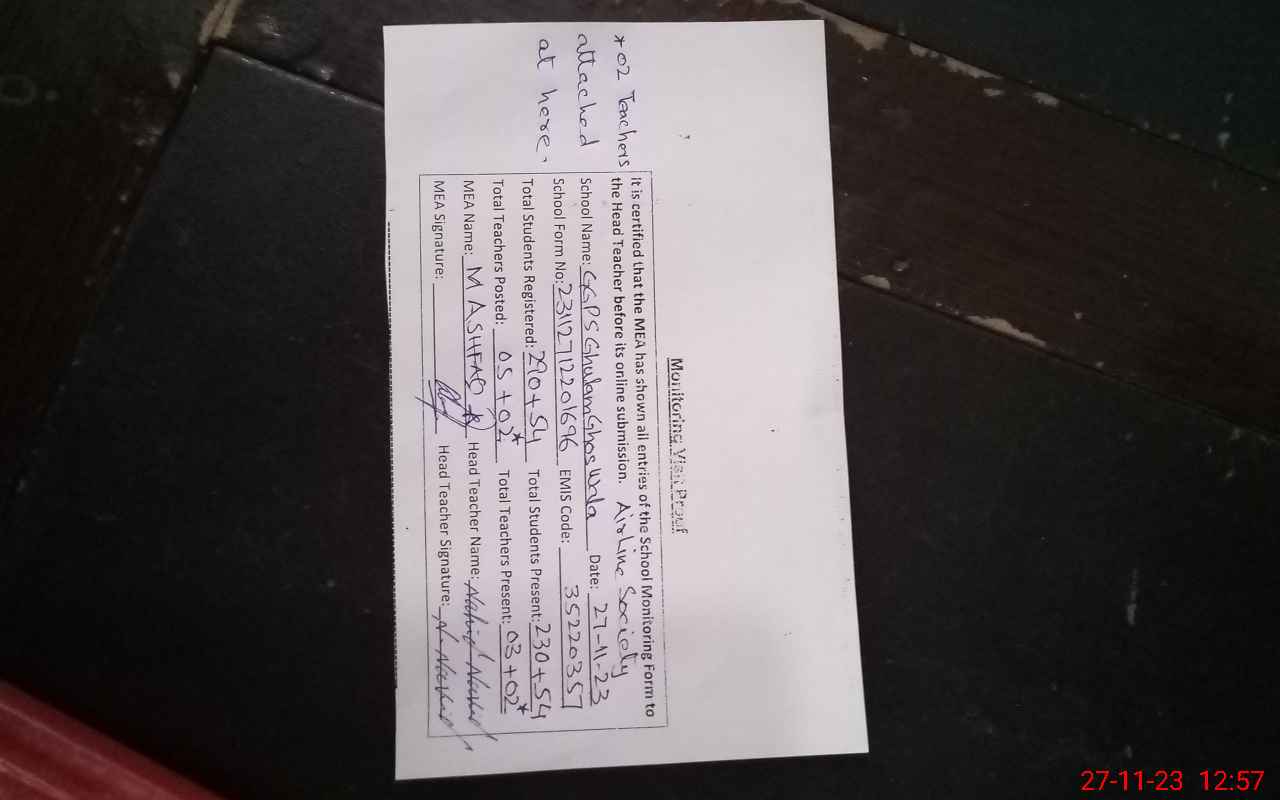 Monitoring Visit Proof
It is certified that the MEA has shown all entries of the School Monitoring Form to
the Head Teacher before its online submission. Airline Society
School Name: GGPS Ghulam Ghos Wala Date: 27-11-23
School Form No: 231127122201696 EMIS Code: 35220357
Total Students Registered: 290+54 Total Students Present: 230+54
Total Teachers Posted: 05+02* Total Teachers Present: 03+02*
MEA Name: M ASHFAQ Head Teacher Name:
MEA Signature: Head Teacher Signature:
*02 Teachers
attached
at here.
27-11-23 12:57